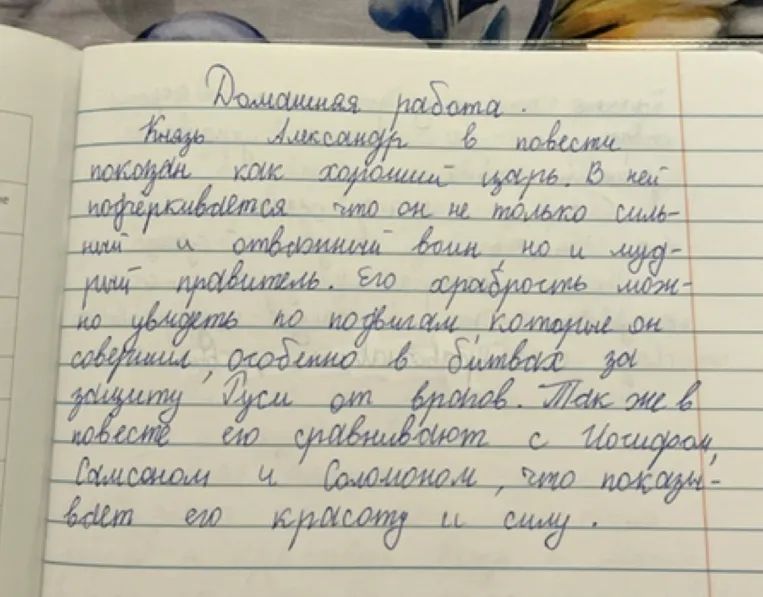 Домашняя работа.
Князь Александр в повести
показан как хороший царь. В ней
подчеркивается что он не только силь-
ный и отважный воин, но и муд-
рый правитель. Его храбрость мож-
но увидеть по подвигам, которые он
совершил, особенно в битвах за
защиту Руси от врагов. Так же в
повесте его сравнивают с Иосифом,
Самсоном и Соломоном, что показы-
вает его красоту и силу.